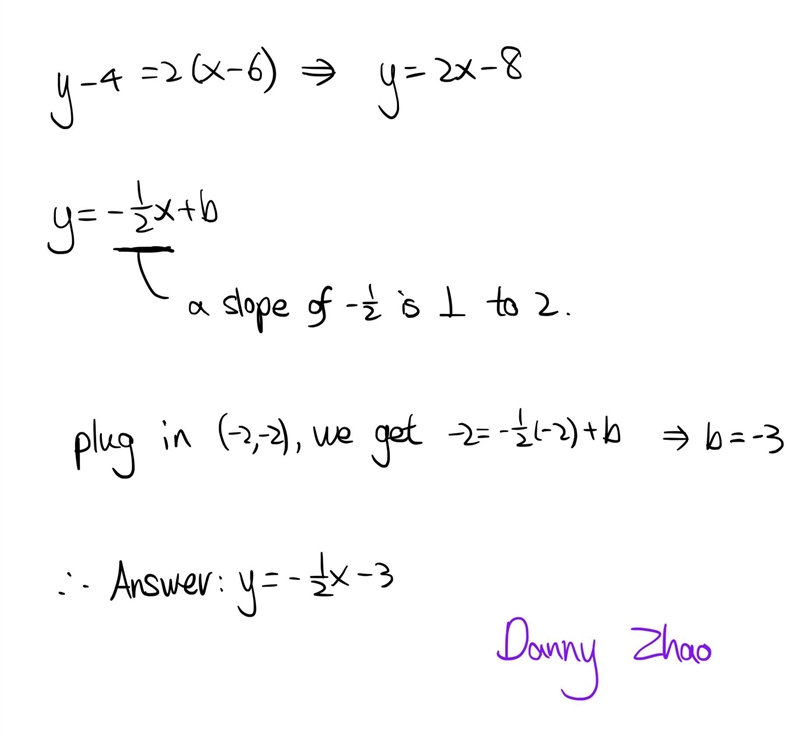 y-4=2(x-6) ⇒ y=2x-8
y=-½x+b
a slope of -½ is ⊥ to 2.
plug in (-2,-2), we get -2=-½(-2)+b ⇒ b=-3
∴ Answer: y=-½x-3
Danny Zhao